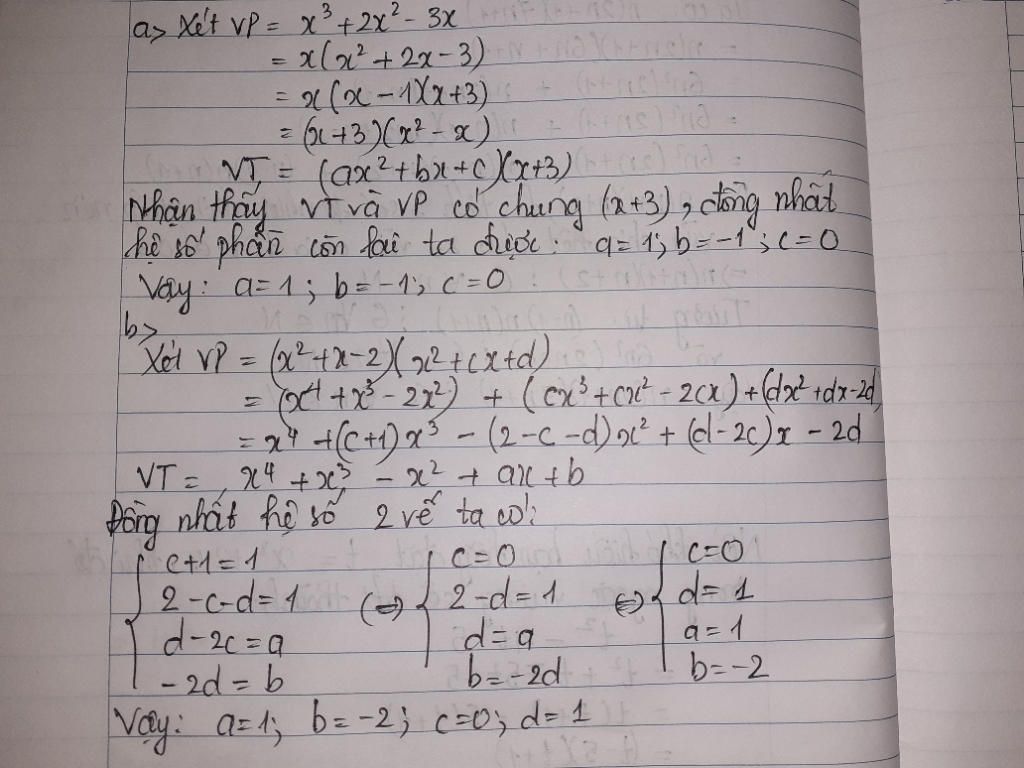 a> Xét VP = x³ + 2x² - 3x
= x(x² + 2x - 3)
= x(x - 1)(x + 3)
= (x+3)(x² - x)
VT = (ax² + bx + c)(x+3)
Nhận thấy VT và VP có chung (x+3), đồng nhất
hệ số phần còn lại ta được: a=1; b=-1; c=0
Vậy: a=1; b=-1; c=0
b>
Xét VP = (x² + x - 2)(x² + cx + d)
= (x⁴ + x³ - 2x²) + (cx³ + cx² - 2cx) + (dx² + dx - 2d)
= x⁴ + (c+1)x³ - (2-c-d)x² + (d-2c)x - 2d
VT = x⁴ + x³ - x² + ax + b
Đồng nhất hệ số 2 vế ta có:
c+1=1 c=0 c=0
2-c-d=1 (=) 2-d=1 (=) d=1
d-2c=a d=a a=1
-2d=b b=-2d b=-2
Vậy: a=1; b=-2; c=0; d=1